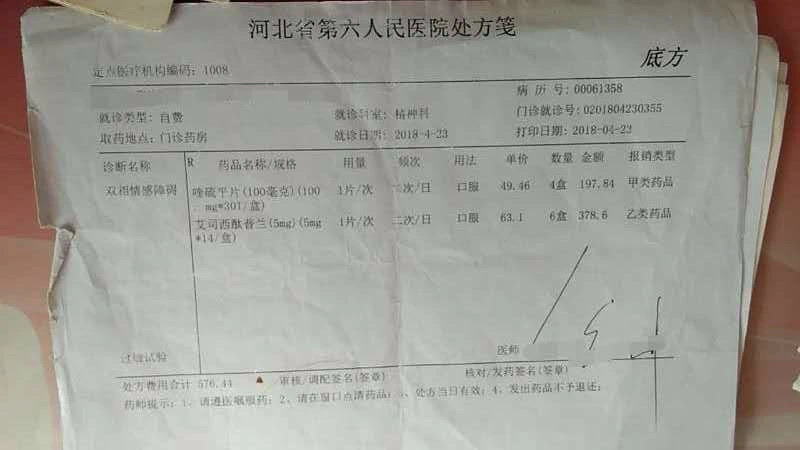 河北省第六人民医院处方笺
底方
定点医疗机构编码: 1008
病 历 号: 00061358
就诊类型: 自费 就诊科室: 精神科 门诊就诊号: 0201804230355
取药地点: 门诊药房 就诊日期: 2018-4-23 打印日期: 2018-04-23
诊断名称 R 药品名称/规格 用量 频次 用法 单价 数量 金额 报销类型
双相情感障碍 喹硫平片(100毫克)(100 1片/次 二次/日 口服 49.46 4盒 197.84 甲类药品
mg*30T/盒)
艾司西酞普兰(5mg)(5mg 1片/次 二次/日 口服 63.1 6盒 378.6 乙类药品
*14/盒)
过敏试验 医师
处方费用合计 576.44 审核/调配签名(签章) 核对/发药签名(签章)
药师提示: 1、请遵医嘱服药; 2、请在窗口点清药品; 、处方当日有效; 4、发出药品不予退还;